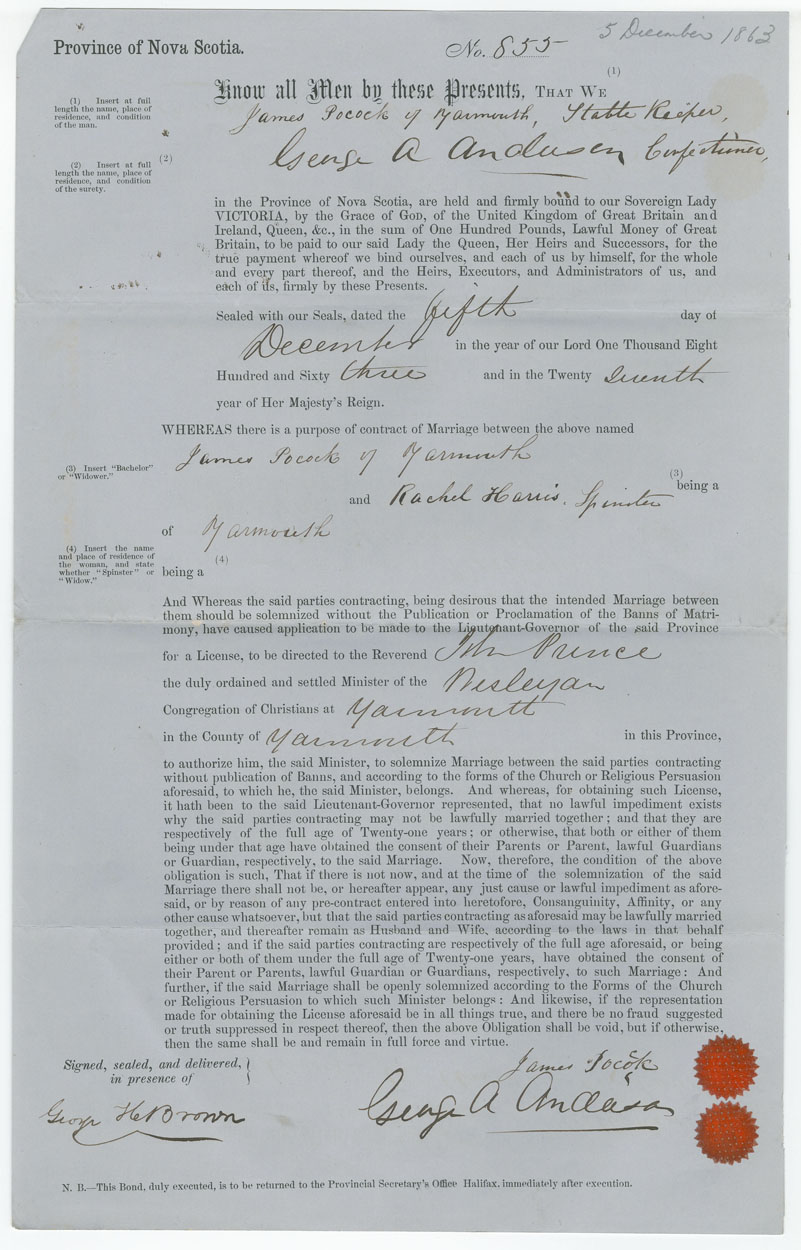 5 December 1863
Province of Nova Scotia.
No. 855
(1)
Know all Men by these Presents, THAT WE
(1) Insert at full
length the name, place of
residence, and condition
of the man.
James Pocock of Yarmouth, Stable Keeper,
(2)
(2) Insert at full
length the name, place of
residence, and condition
of the surety.
George A Anderson Confectioner,
in the Province of Nova Scotia, are held and firmly bound to our Sovereign Lady
VICTORIA, by the Grace of GOD, of the United Kingdom of Great Britain and
Ireland, Queen, &c., in the sum of One Hundred Pounds, Lawful Money of Great
Britain, to be paid to our said Lady the Queen, Her Heirs and Successors, for the
true payment whereof we bind ourselves, and each of us by himself, for the whole
and every part thereof, and the Heirs, Executors, and Administrators of us, and
each of us, firmly by these Presents.
Sealed with our Seals, dated the fifth day of
December in the year of our Lord One Thousand Eight
Hundred and Sixty three and in the Twenty Seventh
year of Her Majesty's Reign.
WHEREAS there is a purpose of contract of Marriage between the above named
(3) Insert "Bachelor"
or "Widower."
James Pocock of Yarmouth
(3)
being a
and Rachel Harris. Spinster
of Yarmouth
(4) Insert the name
and place of residence of
the woman, and state
whether "Spinster" or
"Widow."
(4)
being a
And Whereas the said parties contracting, being desirous that the intended Marriage between
them should be solemnized without the Publication or Proclamation of the Banns of Matri-
mony, have caused application to be made to the Lieutenant-Governor of the said Province
for a License, to be directed to the Reverend John Prince
the duly ordained and settled Minister of the Wesleyan
Congregation of Christians at Yarmouth
in the County of Yarmouth in this Province,
to authorize him, the said Minister, to solemnize Marriage between the said parties contracting
without publication of Banns, and according to the forms of the Church or Religious Persuasion
aforesaid, to which he, the said Minister, belongs. And whereas, for obtaining such License,
it hath been to the said Lieutenant-Governor represented, that no lawful impediment exists
why the said parties contracting may not be lawfully married together; and that they are
respectively of the full age of Twenty-one years; or otherwise, that both or either of them
being under that age have obtained the consent of their Parents or Parent, lawful Guardians
or Guardian, respectively, to the said Marriage. Now, therefore, the condition of the above
obligation is such, That if there is not now, and at the time of the solemnization of the said
Marriage there shall not be, or hereafter appear, any just cause or lawful impediment as afore-
said, or by reason of any pre-contract entered into heretofore, Consanguinity, Affinity, or any
other cause whatsoever, but that the said parties contracting as aforesaid may be lawfully married
together, and thereafter remain as Husband and Wife, according to the laws in that behalf
provided; and if the said parties contracting are respectively of the full age aforesaid, or being
either or both of them under the full age of Twenty-one years, have obtained the consent of
their Parent or Parents, lawful Guardian or Guardians, respectively, to such Marriage: And
further, if the said Marriage shall be openly solemnized according to the Forms of the Church
or Religious Persuasion to which such Minister belongs: And likewise, if the representation
made for obtaining the License aforesaid be in all things true, and there be no fraud suggested
or truth suppressed in respect thereof, then the above Obligation shall be void, but if otherwise,
then the same shall be and remain in full force and virtue.
Signed, sealed, and delivered,
in presence of
James Pocock
George A Anderson
George H Brown
N. B.—This Bond, duly executed, is to be returned to the Provincial Secretary's Office Halifax, immediately after execution.